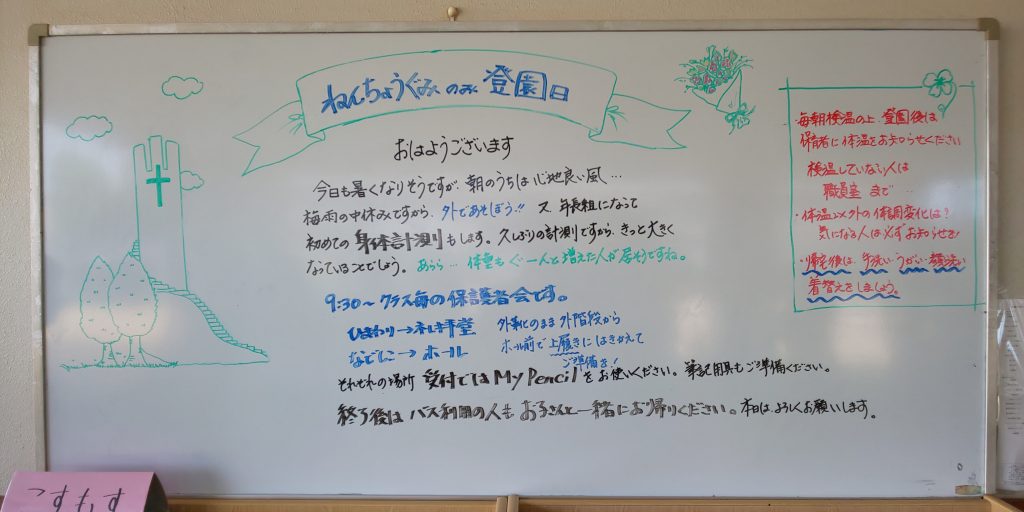 ねんちょうぐみ のみ 登園日
おはようございます
今日も暑くなりそうですが、朝のうちは心地良い風…
梅雨の中休みですから、外であそぼう!! 又、年長組になって
初めての身体計測もします。久しぶりの計測ですから、きっと大きく
なっていることでしょう。あらら… 体重もぐーんと増えた人が居そうですね。
9:30〜 クラス毎の保護者会です。
ひまわり→礼拝堂 外靴のまま外階段から
なでしこ→ホール ホール前で上履きにはきかえて
ご準備を!
それぞれの場所 受付ではMy Pencilをお使いください。筆記用具もご準備ください。
終了後はバス利用の人もお子さんと一緒にお帰りください。本日はよろしくお願いします。
・毎朝検温の上、登園後は
保育者に体温をお知らせください
検温していない人は
職員室まで…
・体温以外の体調変化は?
気になる人は必ずお知らせを!
・帰宅後は、手洗い・うがい・顔洗い
着替えをしましょう。
こすもす